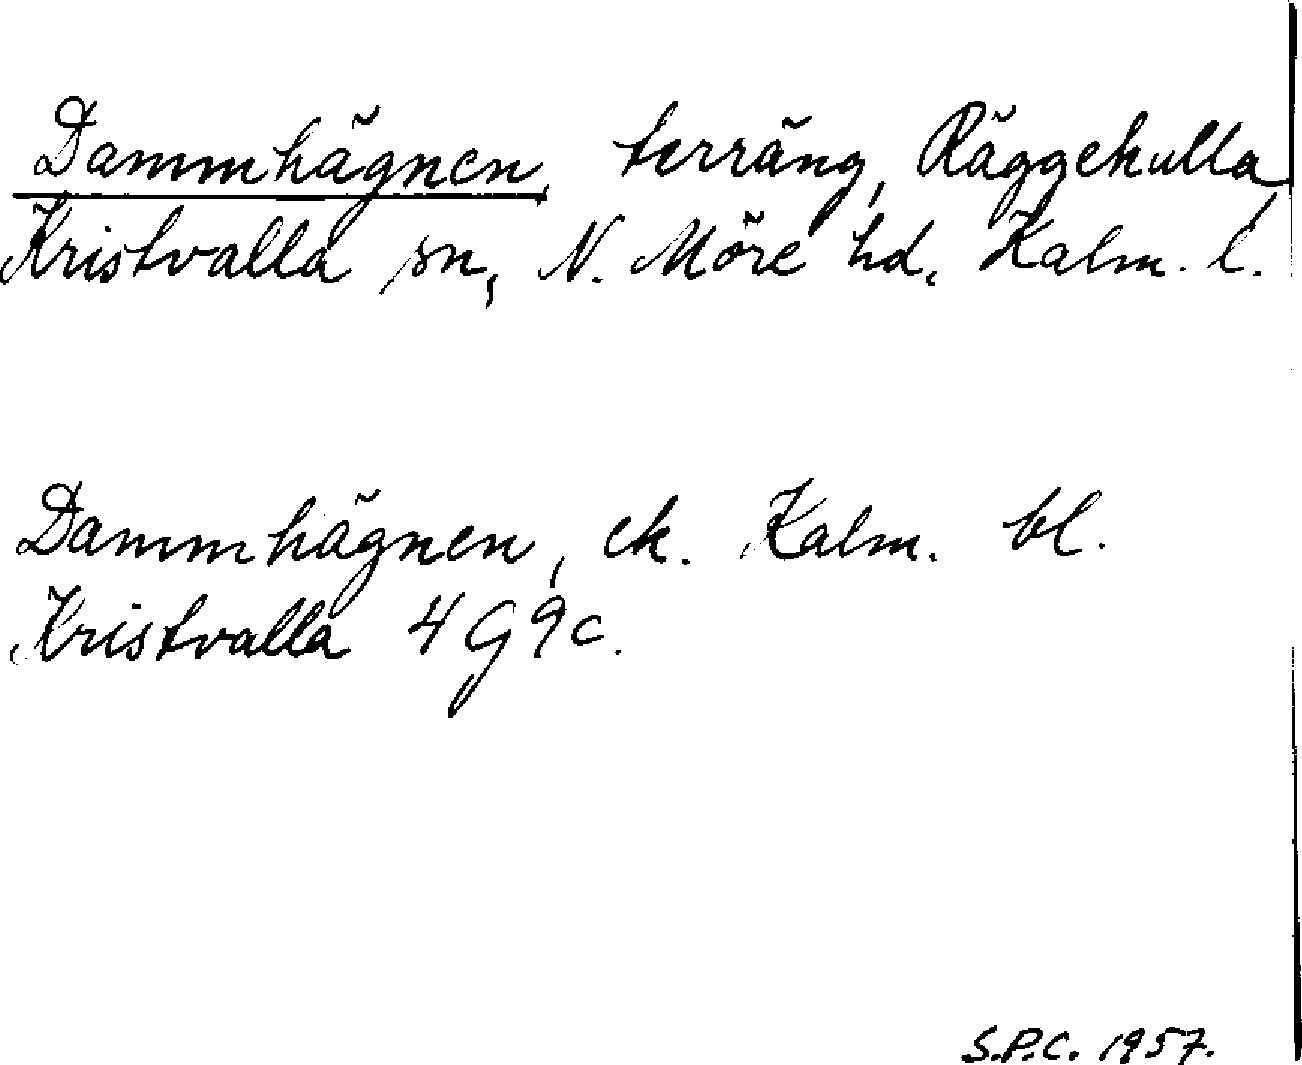 Dammhägnen, terräng, Räggekulla,
Kristvalla sn, N. Möre hd, Kalm. l.
Dammhägnen, ek. Kalm. bl.
Kristvalla 4 G 9c.
S.P.C. 1957.